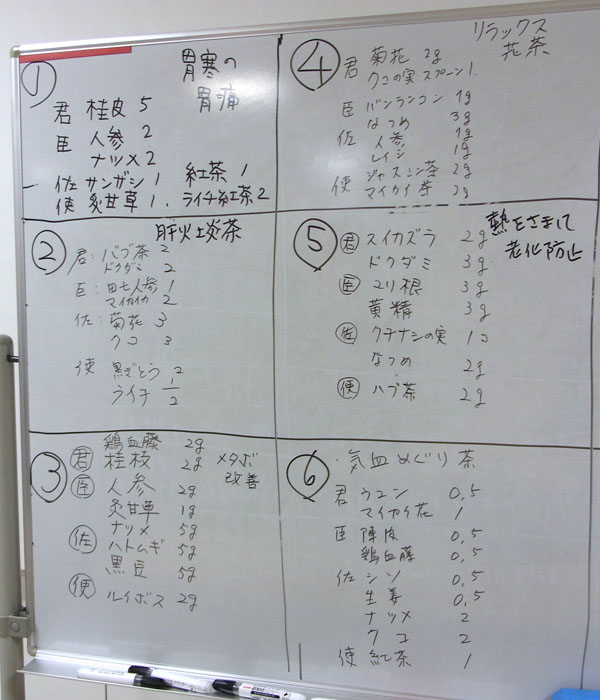 ①
胃寒の
胃痛
君 桂皮 5
臣 人参 2
ナツメ 2
佐 サンザシ 1 紅茶 1
使 炙甘草 1. ライチ紅茶 2
②
肝火上炎茶
君: ハブ茶 2
ドクダミ 2
臣: 田七人参 1
マイカイカ 2
佐: 菊花 3
クコ 3
使 黒ざとう 2
ライチ 1/2
③
メタボ
改善
鶏血藤 2g
君 桂枝 2g
臣 人参 2g
炙甘草 1g
ナツメ 5g
佐 ハトムギ 5g
黒豆 5g
使 ルイボス 2g
④
リラックス
花茶
君 菊花 2g
クコの実 スプーン1.
臣 バンランコン 1g
なつめ 3g
佐 人参 1g
レイシ 1g
使 ジャスミン茶 2g
マイカイ茶 2g
⑤
熱をさまして
老化防止
君 スイカズラ 2g
ドクダミ 3g
臣 ユリ根 3g
黄精 3g
佐 クチナシの実 1コ
なつめ 2g
使 ハブ茶 2g
⑥
・気血めぐり茶
君 ウコン 0,5
マイカイ花 1
臣 陳皮 0,5
鶏血藤 0,5
佐 シソ 0,5
生姜 0,5
ナツメ 2
クコ 2
使 紅茶 1